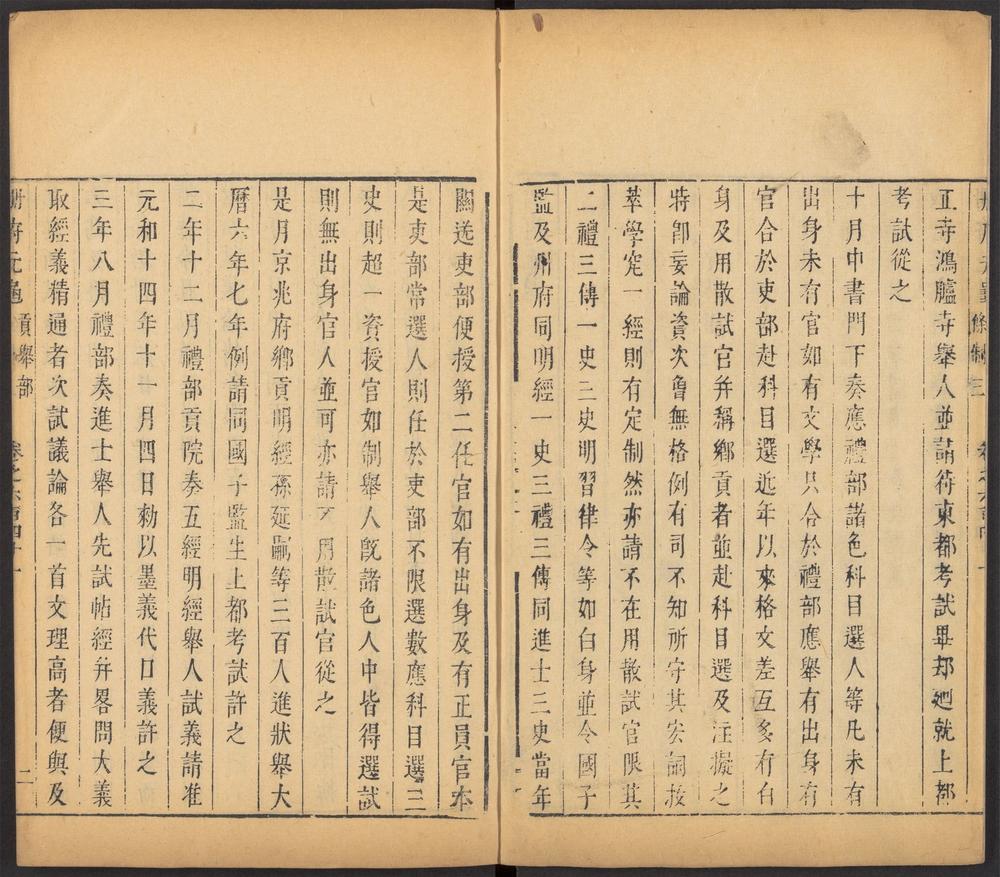 冊府元龜 條制三 卷之六百四十一
正寺鴻臚寺舉人並請待東都考試畢却廻就上都
考試從之
十月中書門下奏應禮部諸色科目選人等凡未有
出身未有官如有文學只合於禮部應舉有出身有
官合於吏部赴科目選近年以來格文差互多有白
身及用散試官并稱鄉貢者並赴科目選及注擬之
特卽妄論資次曾無格例有司不知所守其宏詞拔
萃學究一經則有定制然亦請不在用散試官限其
二禮三傳一史三史明習律令等如白身並令國子
監及州府同明經一史三禮三傳同進士三史當年
關送吏部便授第二任官如有出身及有正員官本
是吏部常選人則任於吏部不限選數應科目選三
史則超一資授官如制舉人旣諸色人中皆得選試
則無出身官人並可亦請不用散試官從之
是月京兆府鄉貢明經孫延嗣等三百人進狀舉大
曆六年七年例請同國子監生上都考試許之
二年十二月禮部貢院奏五經明經舉人試義請准
元和十四年十一月四日勑以墨義代口義許之
三年八月禮部奏進士舉人先試帖經并畧問大義
取經義精通者次試議論各一首文理高者便與及
冊府元龜 貢舉部 卷之六百四十一 二